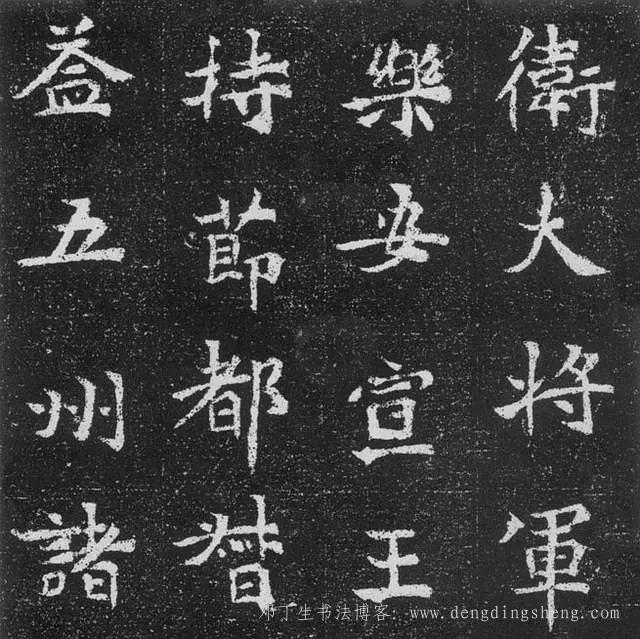 衛大將軍
樂安宣王
持節都督
益五州諸
邓丁生书法博客: www.dengdingsheng.com